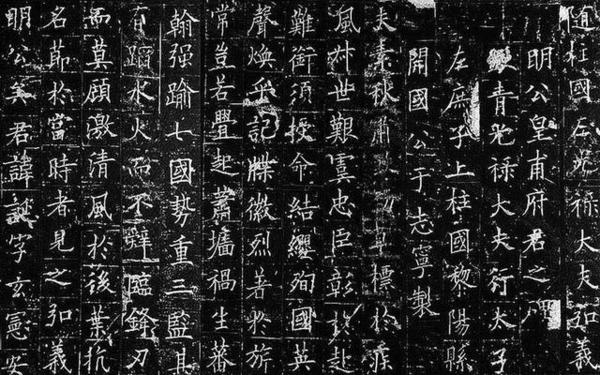 隨柱國左光祿大夫弘義
明公皇甫府君之碑
青光祿大夫行太子
左庶子上柱國黎陽縣
開國公于志寧製
夫素秋肅草標於疾
風叔世艱虞忠臣彰於赴
難銜須授命結纓殉國英
聲煥乎記牒徽烈著於旂
常豈若釁起蕭墻禍生蕃
翰强踰七國勢重三監其
有蹈水火而不辭臨鋒刃
而莫顧激清風於後葉抗
名節於當時者見之弘義
明公矣君諱誕字玄憲安